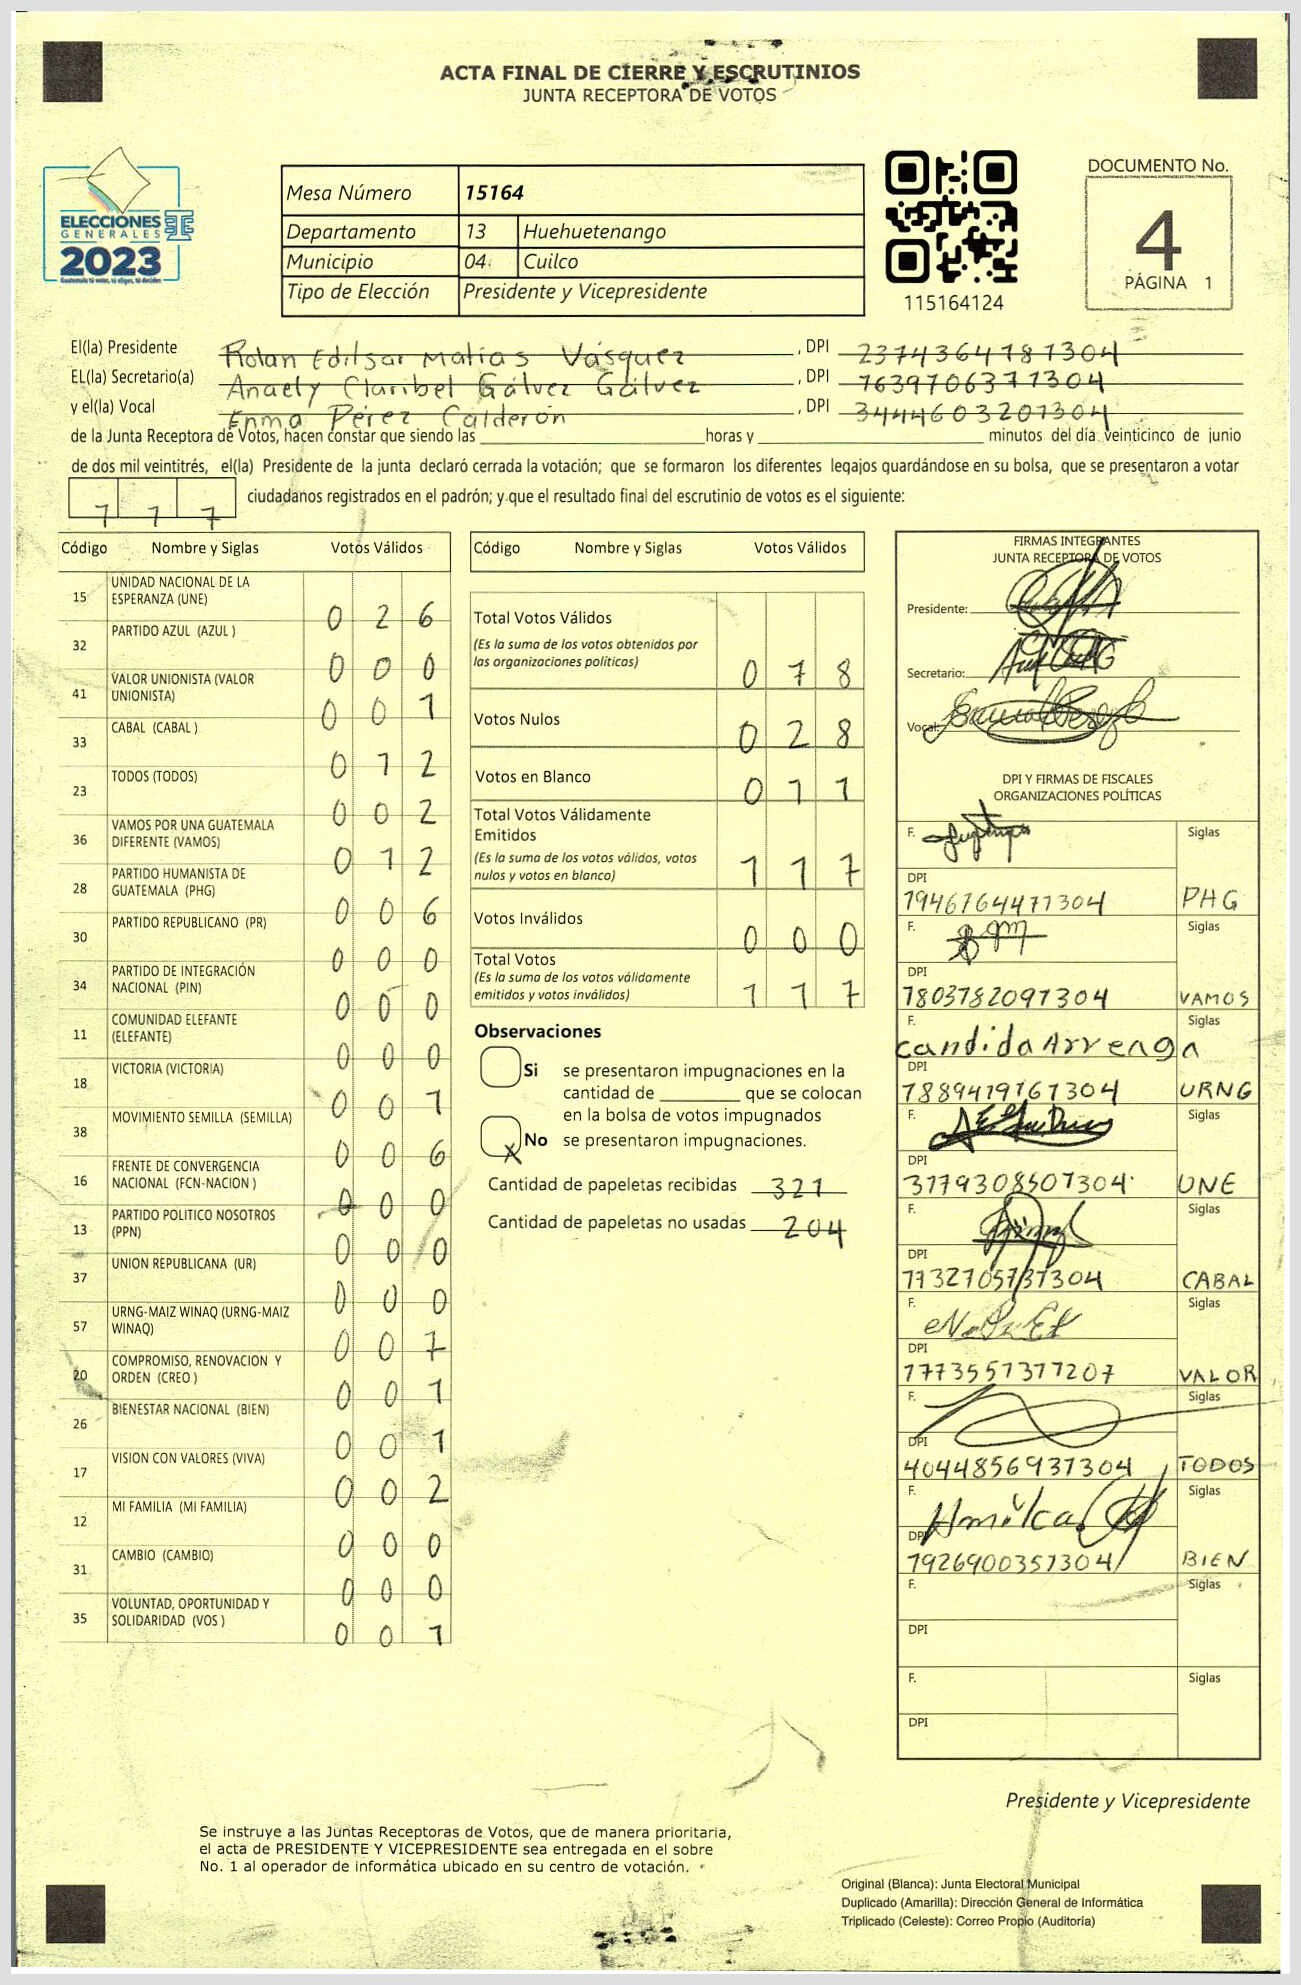 ACTA FINAL DE CIERRE Y ESCRUTINIOS
JUNTA RECEPTORA DE VOTOS
ELECCIONES
GENERALES
2023
Mesa Número 15164
Departamento 13 Huehuetenango
Municipio 04 Cuilco
Tipo de Elección Presidente y Vicepresidente
115164124
DOCUMENTO No.
4
PÁGINA 1
El(la) Presidente Rolan Edilsar Matías Vásquez, DPI 2374364181304
EL(la) Secretario(a) Anaely Claribel Gálvez Gálvez, DPI 1639706371304
y el(la) Vocal Enma Pérez Calderón, DPI 3444603201304
de la Junta Receptora de Votos, hacen constar que siendo las horas y minutos del día veinticinco de junio
de dos mil veintitrés, el(la) Presidente de la junta declaró cerrada la votación; que se formaron los diferentes legajos guardándose en su bolsa, que se presentaron a votar
117 ciudadanos registrados en el padrón; y que el resultado final del escrutinio de votos es el siguiente:
Código Nombre y Siglas Votos Válidos
15 UNIDAD NACIONAL DE LA ESPERANZA (UNE) 0 2 6
32 PARTIDO AZUL (AZUL ) 0 0 0
41 VALOR UNIONISTA (VALOR UNIONISTA) 0 0 1
33 CABAL (CABAL ) 0 1 2
23 TODOS (TODOS) 0 0 2
36 VAMOS POR UNA GUATEMALA DIFERENTE (VAMOS) 0 1 2
28 PARTIDO HUMANISTA DE GUATEMALA (PHG) 0 0 6
30 PARTIDO REPUBLICANO (PR) 0 0 0
34 PARTIDO DE INTEGRACIÓN NACIONAL (PIN) 0 0 0
11 COMUNIDAD ELEFANTE (ELEFANTE) 0 0 0
18 VICTORIA (VICTORIA) 0 0 1
38 MOVIMIENTO SEMILLA (SEMILLA) 0 0 6
16 FRENTE DE CONVERGENCIA NACIONAL (FCN-NACION ) 0 0 0
13 PARTIDO POLITICO NOSOTROS (PPN) 0 0 0
37 UNION REPUBLICANA (UR) 0 0 0
57 URNG-MAIZ WINAQ (URNG-MAIZ WINAQ) 0 0 7
20 COMPROMISO, RENOVACION Y ORDEN (CREO ) 0 0 1
26 BIENESTAR NACIONAL (BIEN) 0 0 1
17 VISION CON VALORES (VIVA) 0 0 2
12 MI FAMILIA (MI FAMILIA) 0 0 0
31 CAMBIO (CAMBIO) 0 0 0
35 VOLUNTAD, OPORTUNIDAD Y SOLIDARIDAD (VOS ) 0 0 1
Código Nombre y Siglas Votos Válidos
Total Votos Válidos
(Es la suma de los votos obtenidos por
las organizaciones políticas) 0 7 8
Votos Nulos 0 2 8
Votos en Blanco 0 1 1
Total Votos Válidamente
Emitidos
(Es la suma de los votos válidos, votos
nulos y votos en blanco) 1 1 7
Votos Inválidos 0 0 0
Total Votos
(Es la suma de los votos válidamente
emitidos y votos inválidos) 1 1 7
Observaciones
Si se presentaron impugnaciones en la
cantidad de que se colocan
en la bolsa de votos impugnados
X No se presentaron impugnaciones.
Cantidad de papeletas recibidas 321
Cantidad de papeletas no usadas 204
FIRMAS INTEGRANTES
JUNTA RECEPTORA DE VOTOS
Presidente:
Secretario:
Vocal:
DPI Y FIRMAS DE FISCALES
ORGANIZACIONES POLÍTICAS
F. Siglas
DPI
1946764471304 PHG
F. Siglas
DPI
1803782091304 VAMOS
F. Siglas
candida Arreaga
DPI
URNG
F. Siglas
DPI
3179308501304 UNE
F. Siglas
DPI
CABAL
F. Siglas
DPI
1773551371207 VALOR
F. Siglas
DPI
4044856931304 TODOS
F. Siglas
DPI
1926900351304 BIEN
F. Siglas
DPI
F. Siglas
DPI
Presidente y Vicepresidente
Se instruye a las Juntas Receptoras de Votos, que de manera prioritaria,
el acta de PRESIDENTE Y VICEPRESIDENTE sea entregada en el sobre
No. 1 al operador de informática ubicado en su centro de votación.
Original (Blanca): Junta Electoral Municipal
Duplicado (Amarilla): Dirección General de Informática
Triplicado (Celeste): Correo Propio (Auditoría)